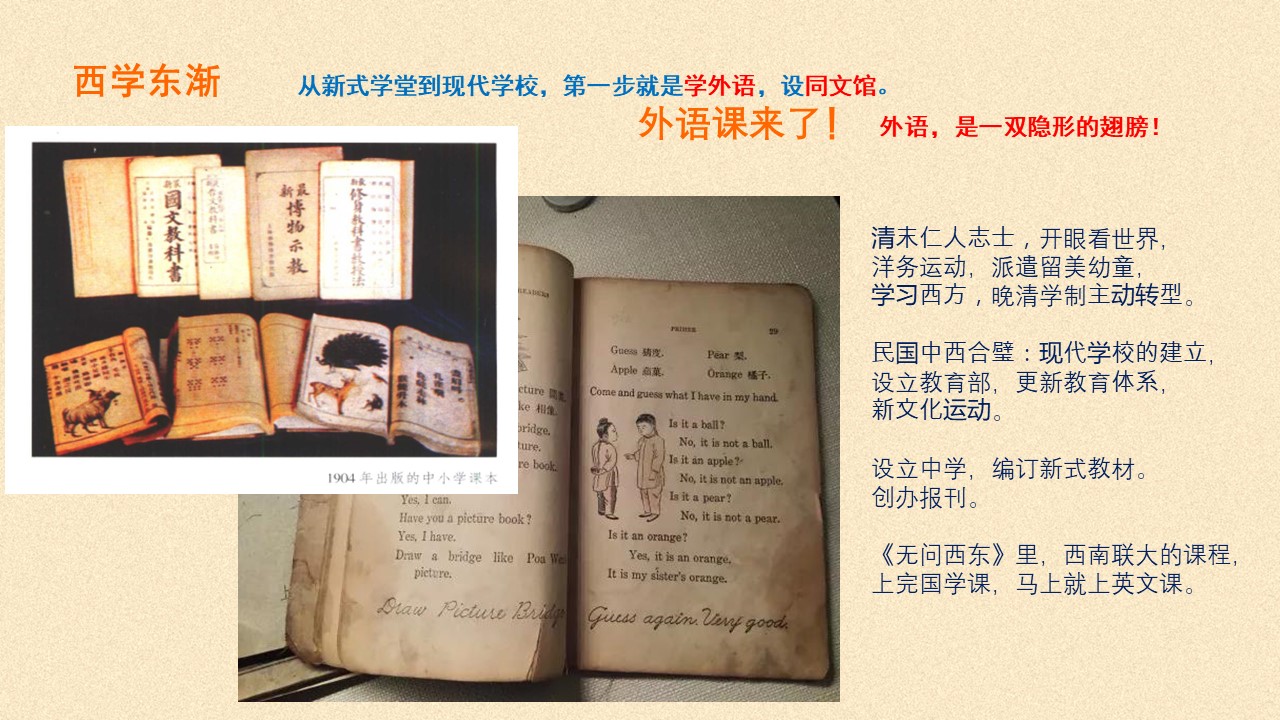 西学东渐
从新式学堂到现代学校，第一步就是学外语，设同文馆。
外语课来了！
外语，是一双隐形的翅膀！
最新
國文教科書
最新
博物示教
最新
修身教科書教授法
1904 年出版的中小学课本
READERS
cture 圖畫.
ke 相像.
bridge.
ture.
re book.
Yes, I can.
Have you a picture book?
Yes, I have.
Draw a bridge like Poa
picture.
Draw Picture Bridge
PRIMER 29
Guess 猜度. Pear 梨.
Apple 蘋菓. Orange 橘子.
Come and guess what I have in my hand.
Is it a ball?
No, it is not a ball.
Is it an apple?
No, it is not an apple.
Is it a pear?
No, it is not a pear.
Is it an orange?
Yes, it is an orange.
It is my sister's orange.
Guess again. Very good.
清末仁人志士，开眼看世界，
洋务运动，派遣留美幼童，
学习西方，晚清学制主动转型。
民国中西合璧：现代学校的建立，
设立教育部，更新教育体系，
新文化运动。
设立中学，编订新式教材。
创办报刊。
《无问西东》里，西南联大的课程，
上完国学课，马上就上英文课。